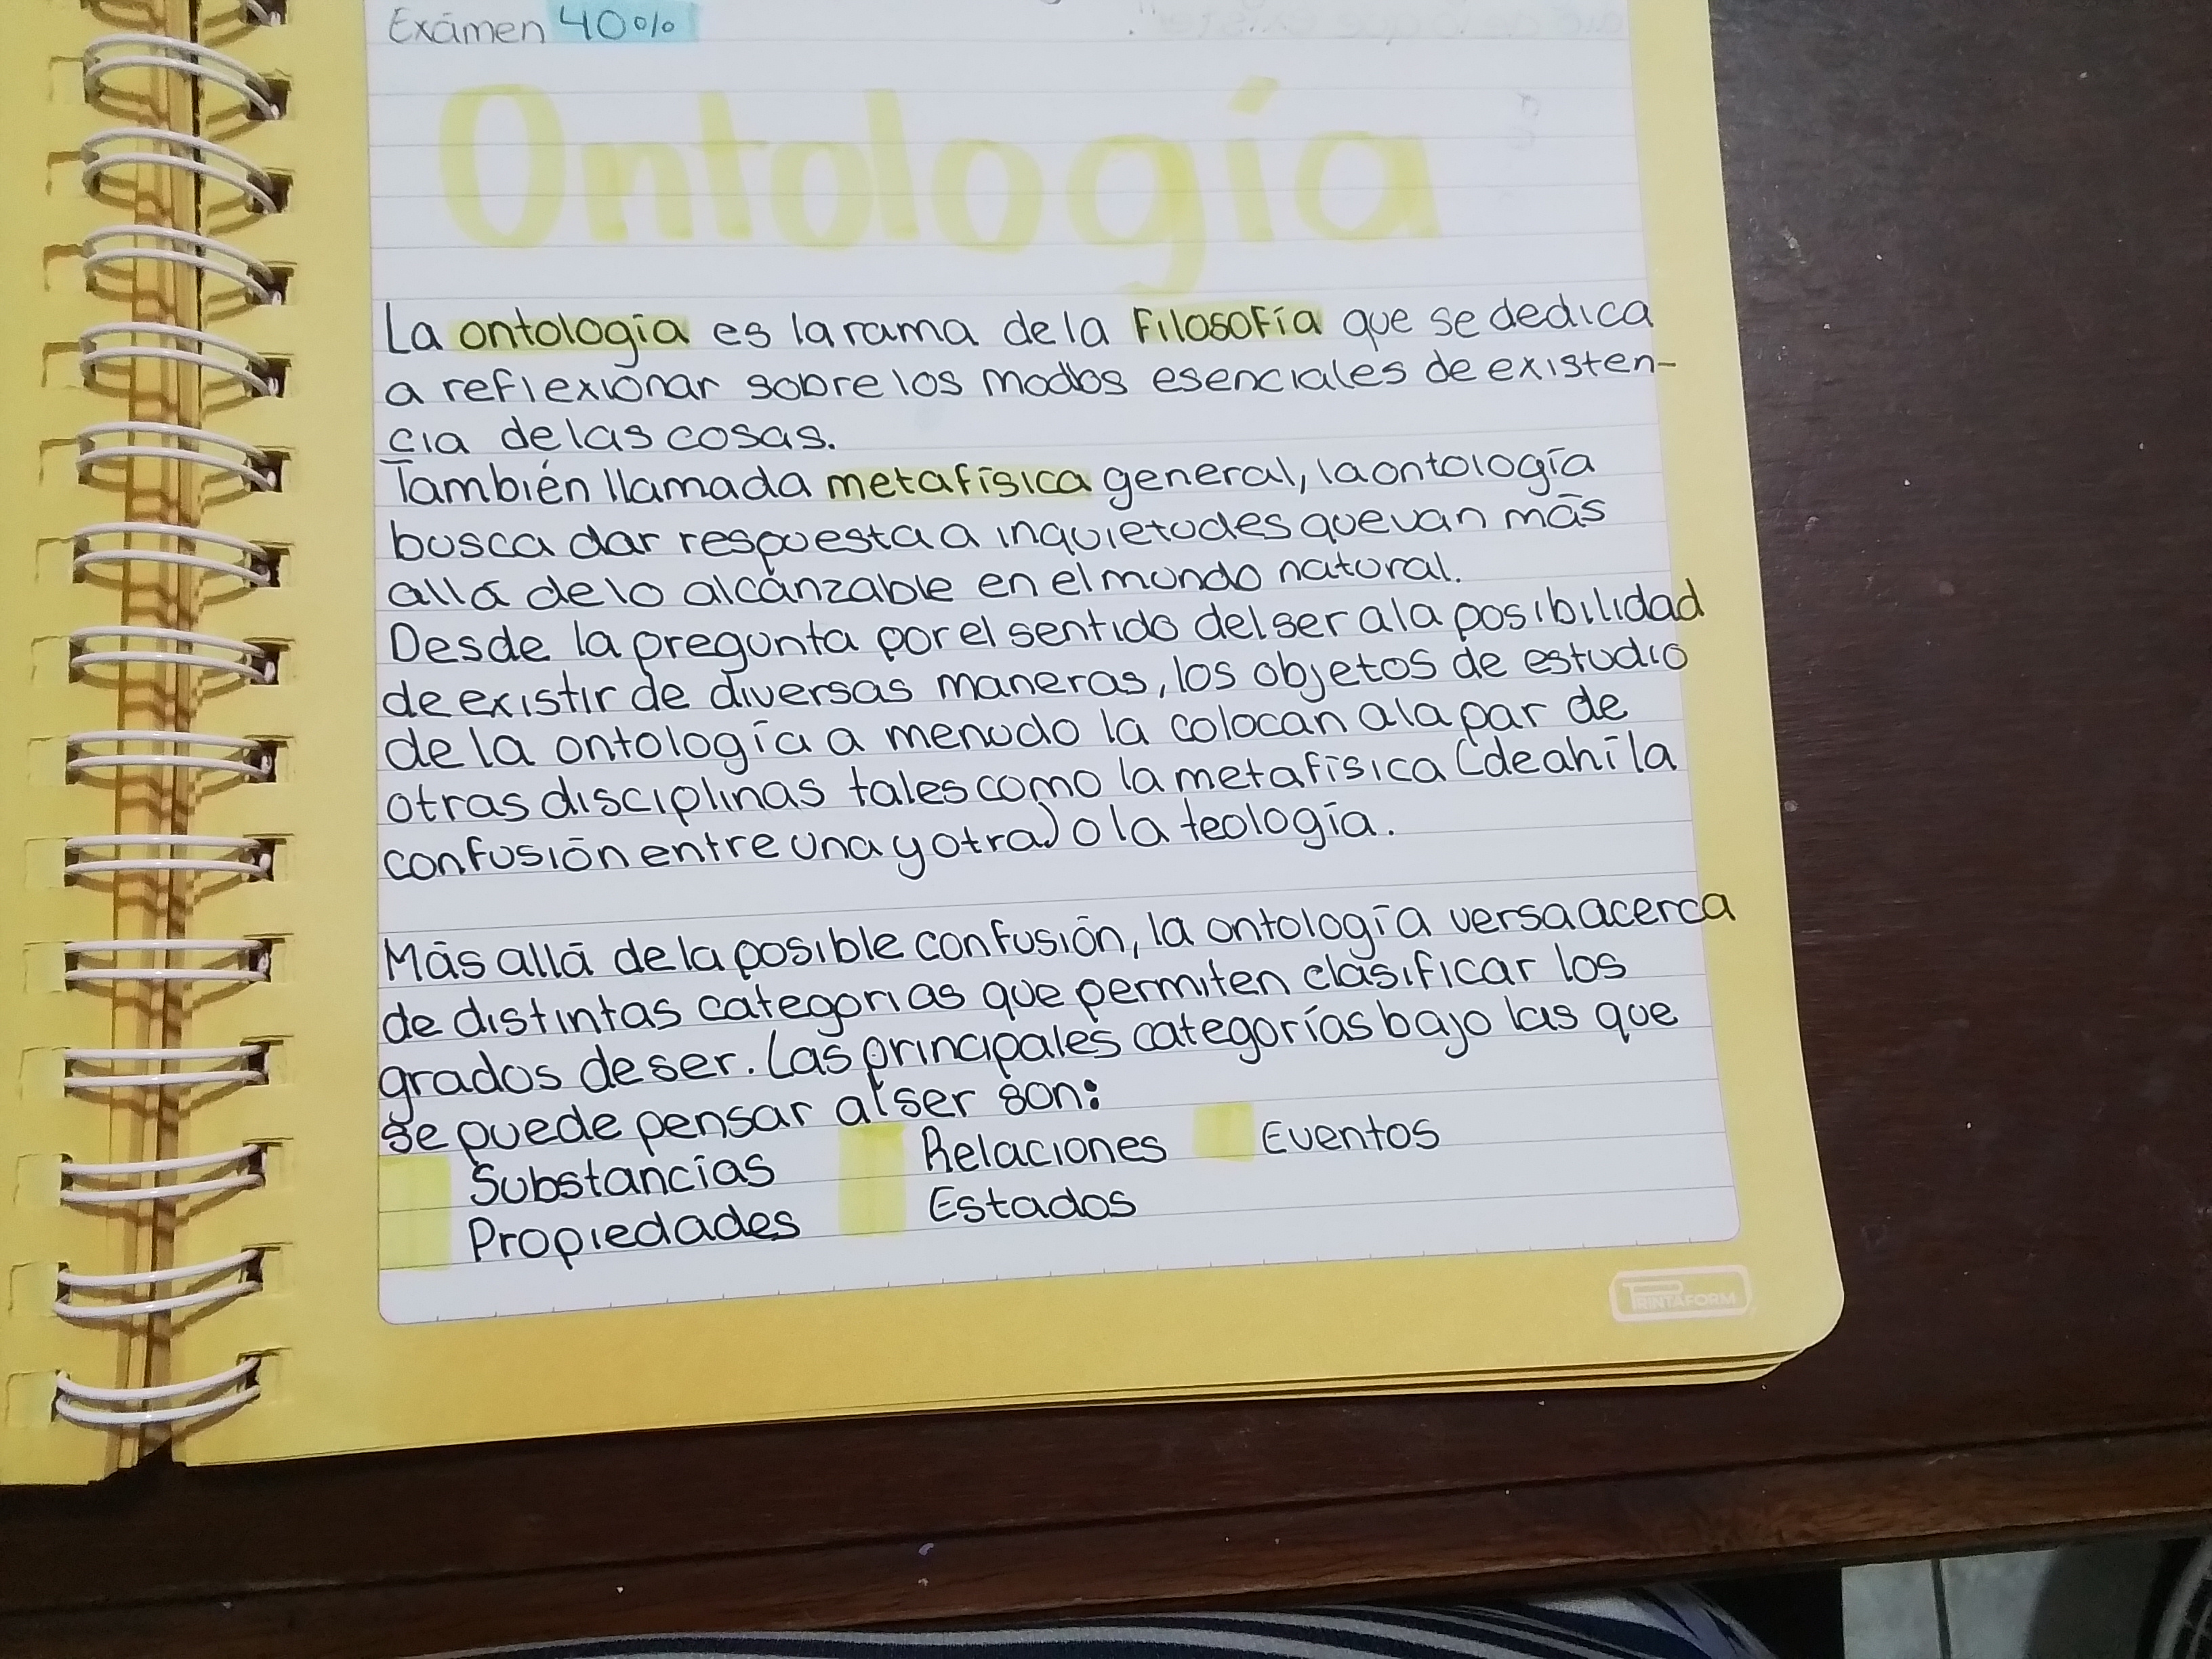 Exámen 40%
Ontología
La ontología es la rama de la Filosofía que se dedica
a reflexionar sobre los modos esenciales de existen-
cia de las cosas.
También llamada metafísica general, la ontología
busca dar respuesta a inquietudes que van más
allá de lo alcanzable en el mundo natural.
Desde la pregunta por el sentido del ser a la posibilidad
de existir de diversas maneras, los objetos de estudio
de la ontología a menudo la colocan a la par de
otras disciplinas tales como la metafísica (de ahí la
confusión entre una y otra) o la teología.
Más allá de la posible confusión, la ontología versa acerca
de distintas categorias que permiten clasificar los
grados de ser. Las principales categorías bajo las que
se puede pensar al ser son:
Substancias Relaciones Eventos
Propiedades Estados
PRINTAFORM